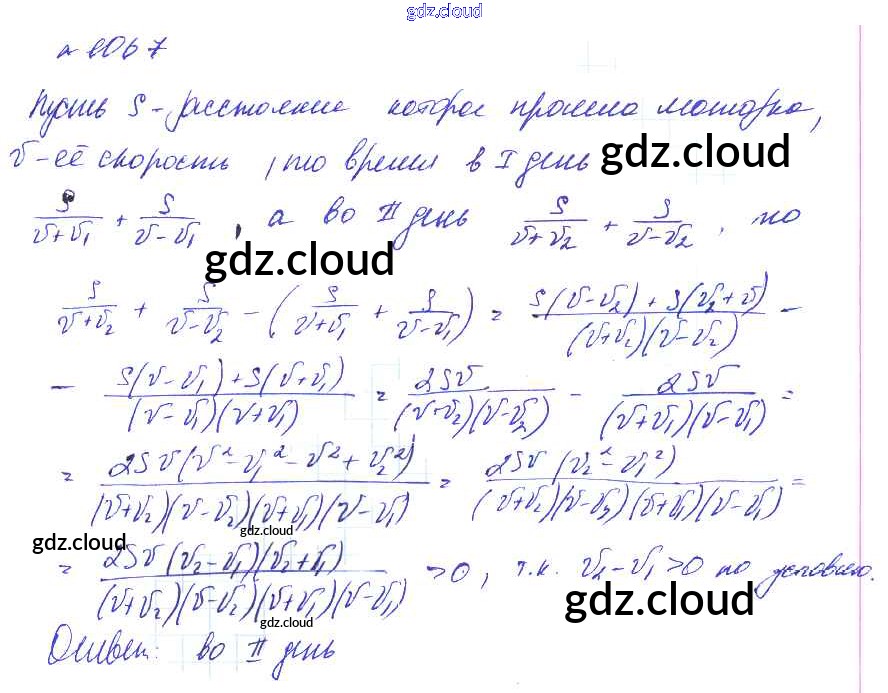 gdz.cloud
№ 1067
Пусть S - расстояние которое прошла моторка,
v - её скорость, то время в I день gdz.cloud
S/(v+v₁) + S/(v-v₁), а во II день S/(v+v₂) + S/(v-v₂), то
gdz.cloud
S/(v+v₂) + S/(v-v₂) - (S/(v+v₁) + S/(v-v₁)) = (S(v-v₂) + S(v₂+v))/((v+v₂)(v-v₂)) -
- (S(v-v₁) + S(v+v₁))/((v-v₁)(v+v₁)) = 2Sv/((v+v₂)(v-v₂)) - 2Sv/((v+v₁)(v-v₁)) =
= 2Sv(v²-v₁²-v²+v₂²)/((v+v₂)(v-v₂)(v+v₁)(v-v₁)) = 2Sv(v₂²-v₁²)/((v+v₂)(v-v₂)(v+v₁)(v-v₁)) =
gdz.cloud gdz.cloud
= 2Sv(v₂-v₁)(v₂+v₁)/((v+v₂)(v-v₂)(v+v₁)(v-v₁)) > 0, т.к. v₂-v₁>0 по условию.
gdz.cloud gdz.cloud
Ответ: во II день